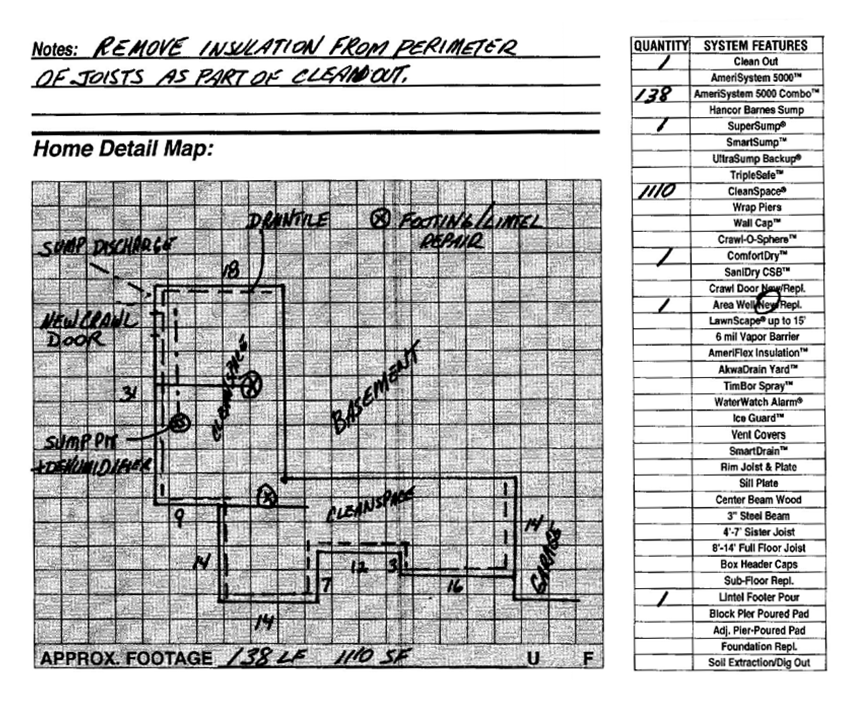 Notes: REMOVE INSULATION FROM PERIMETER
OF JOISTS AS PART OF CLEANOUT.
Home Detail Map:
DRAINTILE
FOOTING/LINTEL
REPAIR
SUMP DISCHARGE
18
NEW CRAWL
DOOR
CLEANSPACE
31
BASEMENT
SUMP PIT
+DEHUMIDIFIER
CLEANSPACE
9
14
14
12
3
7
16
GARAGE
14
APPROX. FOOTAGE 138 LF 1110 SF U F
QUANTITY SYSTEM FEATURES
1 Clean Out
AmeriSystem 5000™
138 AmeriSystem 5000 Combo™
Hancor Barnes Sump
1 SuperSump®
SmartSump™
UltraSump Backup®
TripleSafe™
1110 CleanSpace®
Wrap Piers
Wall Cap™
Crawl-O-Sphere™
1 ComfortDry™
SaniDry CSB™
Crawl Door New/Repl.
1 Area Well New/Repl.
LawnScape® up to 15'
6 mil Vapor Barrier
AmeriFlex Insulation™
AkwaDrain Yard™
TimBor Spray™
WaterWatch Alarm®
Ice Guard™
Vent Covers
SmartDrain™
Rim Joist & Plate
Sill Plate
Center Beam Wood
3" Steel Beam
4'-7' Sister Joist
8'-14' Full Floor Joist
Box Header Caps
Sub-Floor Repl.
1 Lintel Footer Pour
Block Pier Poured Pad
Adj. Pier-Poured Pad
Foundation Repl.
Soil Extraction/Dig Out